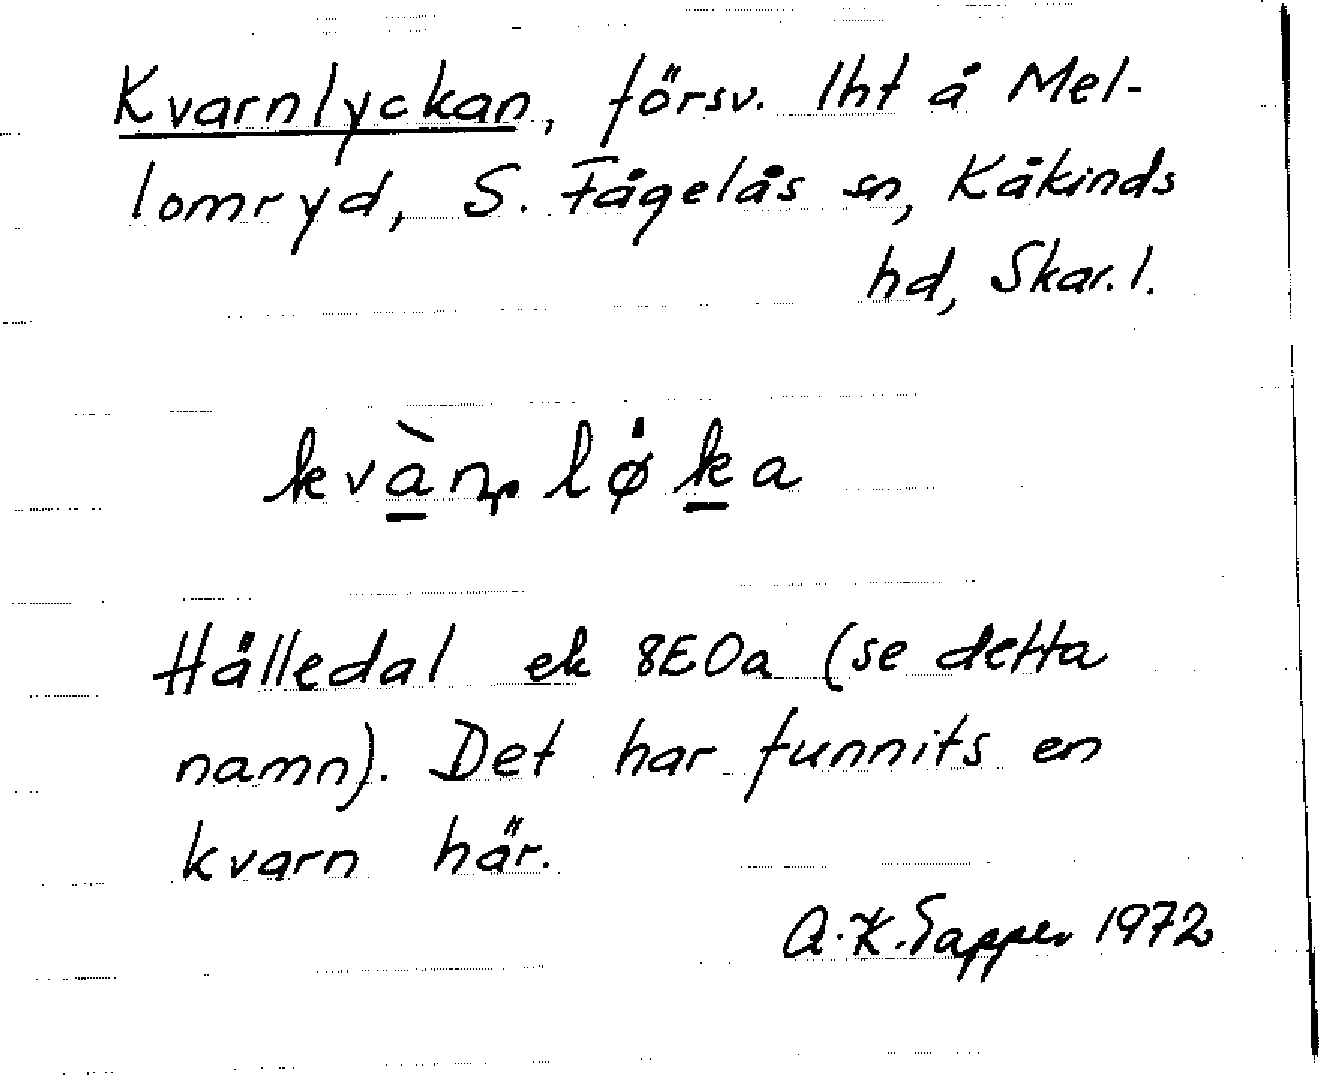 Kvarnlyckan, försv. lht å Mel-
lomryd, S. Fågelås sn, Kåkinds
hd, Skar. l.
kvàn̥løka
Hålledal ek 8E0a (se detta
namn). Det har funnits en
kvarn här.
A.K. Tapper 1972